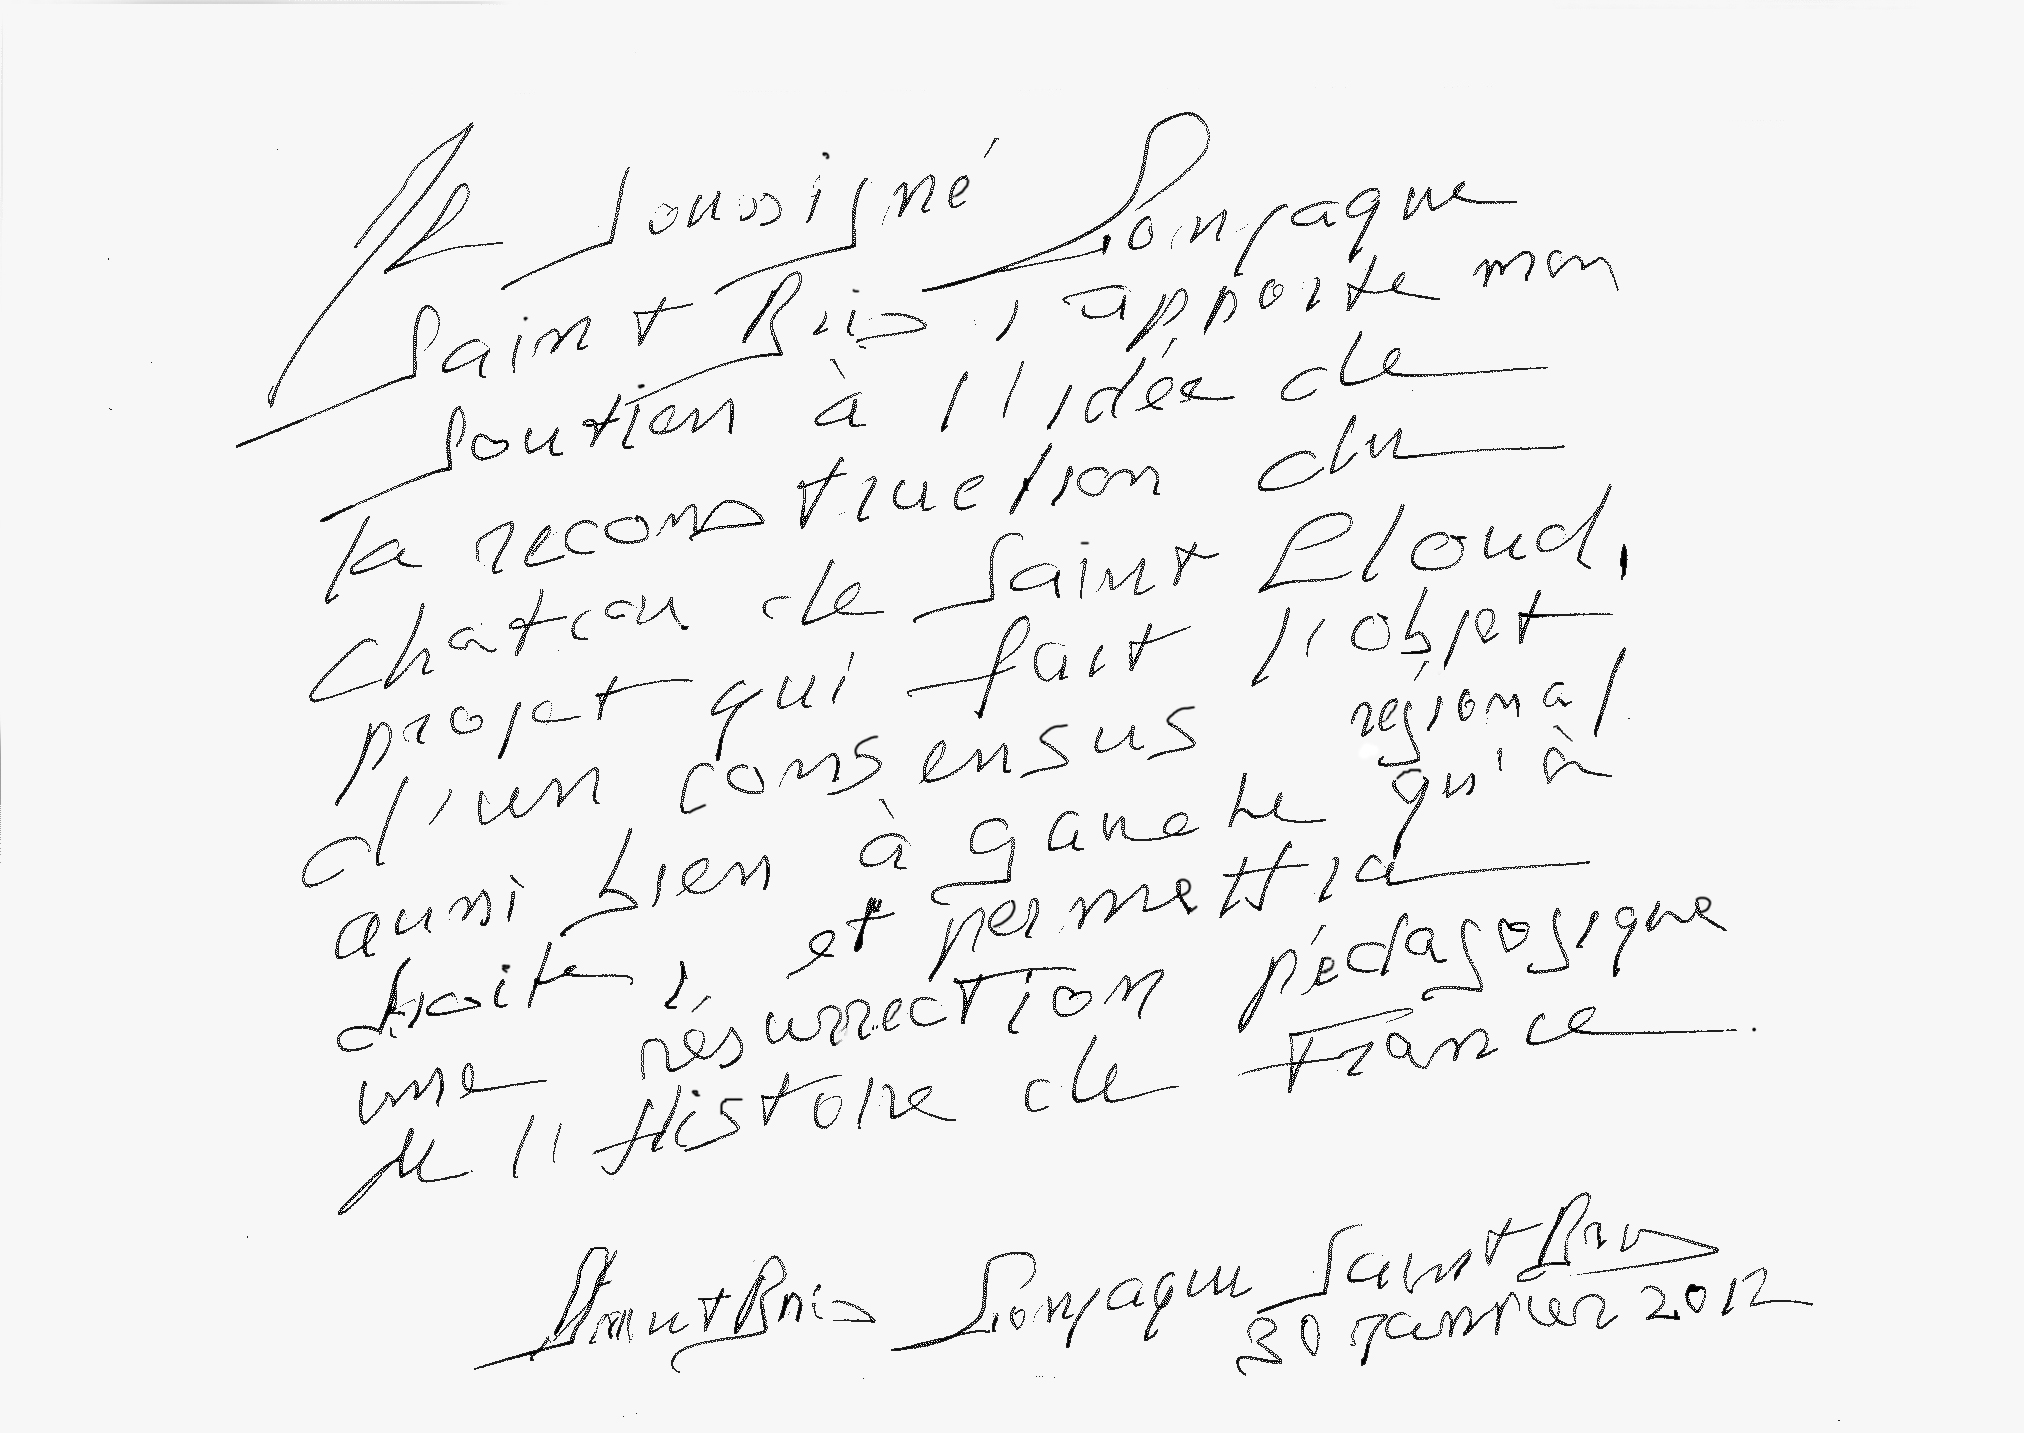 Je soussigné Gonzague
Saint Bris, apporte mon
soutien à l'idée de
la reconstruction du
chateau de Saint Cloud,
projet qui fait l'objet
d'un consensus régional
aussi bien à gauche qu'à
droite, et permettra
une résurrection pédagogique
de l'Histoire de France.
Saint Bris Gonzague Saint Bris
30 janvier 2012